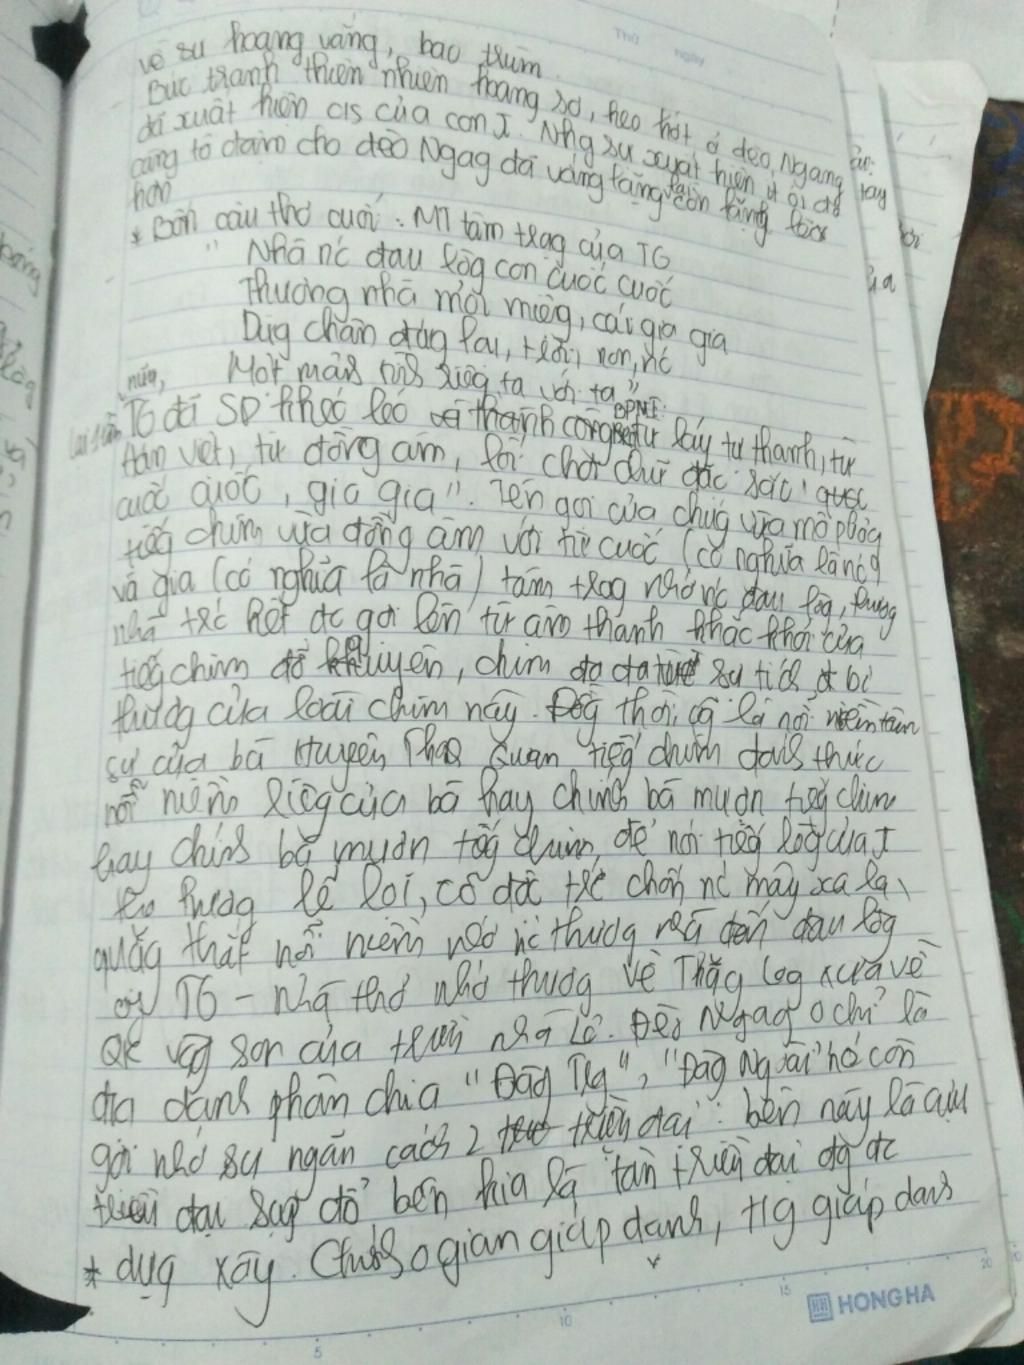 về sự hoang vắng, bao trùm.
Bức tranh thiên nhiên hoang sơ, heo hút ở đèo Ngang
đã xuất hiện c/s của con I. Nhg sự xuất hiện ít ỏi đó
càng tô đậm cho đèo Ngag đã vắng lặng lại còn lặng
hơn
* Bốn câu thơ cuối: MT tâm trạg của TG
" Nhớ nc đau lòg con cuốc cuốc
Thương nhà mỏi miệg, cái gia gia
Dừg chân đứg lại, trời, non, nc
Một mảnh tình riêg ta với ta"
nữa,
Lại 1 lần TG đã SD khéo léo và thành công BPNT: từ láy tự thanh, từ
Hán Việt, từ đồng âm, lối chơi chữ đặc sắc "quốc
cuốc cuốc, gia gia". Tên gọi của chúg vừa mô phỏg
tiếg chim vừa đồng âm với từ cuốc (có nghĩa là nc)
và gia (có nghĩa là nhà) tâm trạg nhớ nc đau lòg, thươg
nhà trc hết đc gợi lên từ âm thanh khắc khoải của
tiếg chim đỗ quyên, chim đa đa sự tích bi
thươg của loài chim này. Đồg thời, cg là nỗi niềm tâm
sự của bà Huyện Thah Quan tiếg chim đánh thức
nỗi niềm riêg của bà hay chính bà mượn tiếg chim
hay chính bà mượn tiếg chim, để nói tiếg lòg của I
lữ thươg lẻ loi, cô độc trc chốn nc mây xa lạ,
quặg thắt nỗi niềm nhớ nc thươg nhà đến đau lòg
TG - nhà thơ nhớ thươg về Thăg Log xưa về
QK vàg son của triều nhà Lê. Đèo Ngag 0 chỉ là
địa danh phân chia "Đàg Trg", "Đàg Ngoài" nó còn
gợi nhớ sự ngăn cách 2 triều đại: bên này là cựu
triều đại sụp đổ bên kia là tân triều đại đg đc
* dựg xây. Chính 0 gian giáp danh, t/g giáp danh
5
10
15
20
HONG HA